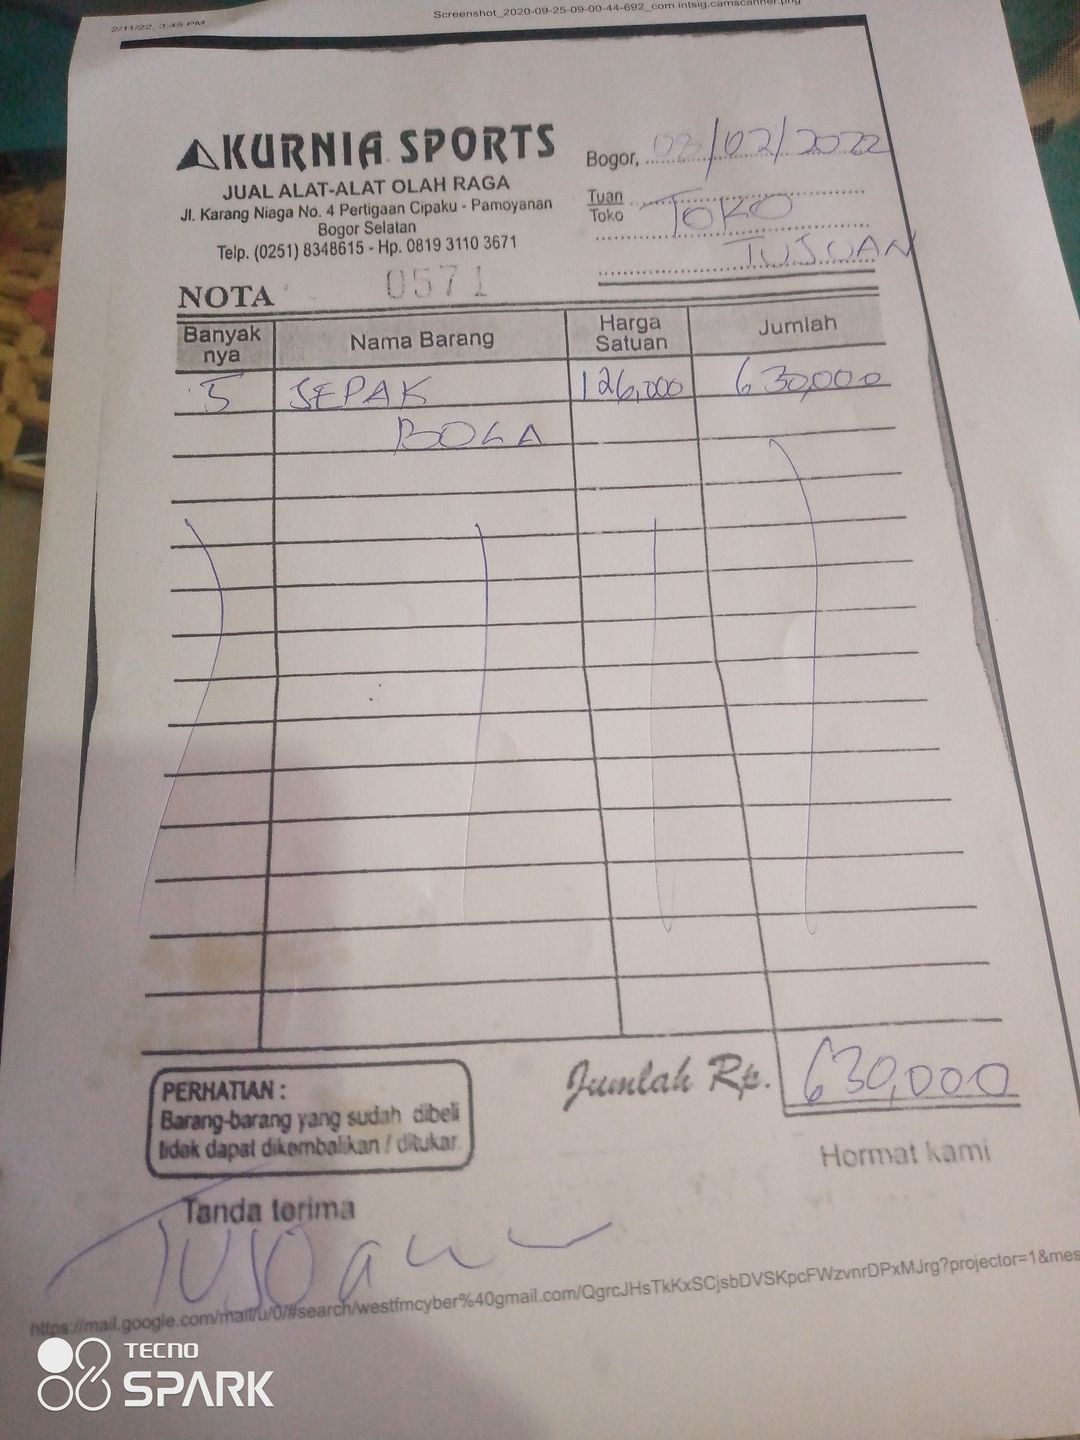 2/11/22, 3:45 PM
Screenshot_2020-09-25-09-00-44-692_com.intsig.camscanner.png
KURNIA SPORTS
JUAL ALAT-ALAT OLAH RAGA
Jl. Karang Niaga No. 4 Pertigaan Cipaku - Pamoyanan
Bogor Selatan
Telp. (0251) 8348615 - Hp. 0819 3110 3671
Bogor, 08/02/2022
Tuan
Toko
TOKO
TUJUAN
NOTA 0571
Banyak nya Nama Barang Harga Satuan Jumlah
5 SEPAK 126,000 630,000
BOLA
Jumlah Rp. 630,000
PERHATIAN :
Barang-barang yang sudah dibeli
tidak dapat dikembalikan / ditukar
Hormat kami
Tanda terima
https://mail.google.com/mail/u/0/#search/westfmcyber%40gmail.com/QgrcJHsTkKxSCjsbDVSKpcFWzvnrDPxMJrg?projector=1&mes
TECNO
SPARK